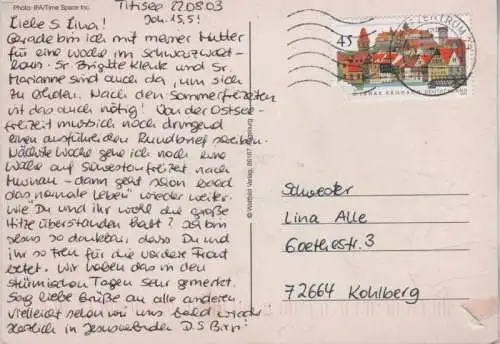 Photo: IFA/Time Space Inc.
Titisee 22.08.03
Joh. 15,5!
Liebe S. Lina!
Gerade bin ich mit meiner Mutter
für eine Woche im Schwarzwald-
Sr. Brigitte und Sr.
Marianne sind auch da, um sich
zu erholen. Nach den Sommerfreizeiten
ist das auch nötig! Von der Ostsee-
freizeit muss ich noch dringend
einen ausführlichen Rundbrief schreiben.
Nächste Woche gehe ich noch eine
Woche auf Silvestonfreizeit nach
Murnau - dann geht schon bald
das "normale Leben" wieder weiter.
Wie Du und ihr wohl die große
Hitze überstanden habt? Ich bin
Jesus so dankbar, dass Du und
ihr so treu für die vordere Front
betet. Wir haben das in den
stürmischen Tagen sehr gemerkt.
Sag liebe Grüße an alle anderen
vielleicht sehen wir uns bald wieder
Herzlich in Jesu verbunden D. S.
© Weltbild Verlag, 86167 Augsburg
45
Schwester
Lina Alle
Goethestr. 3
72664 Kohlberg